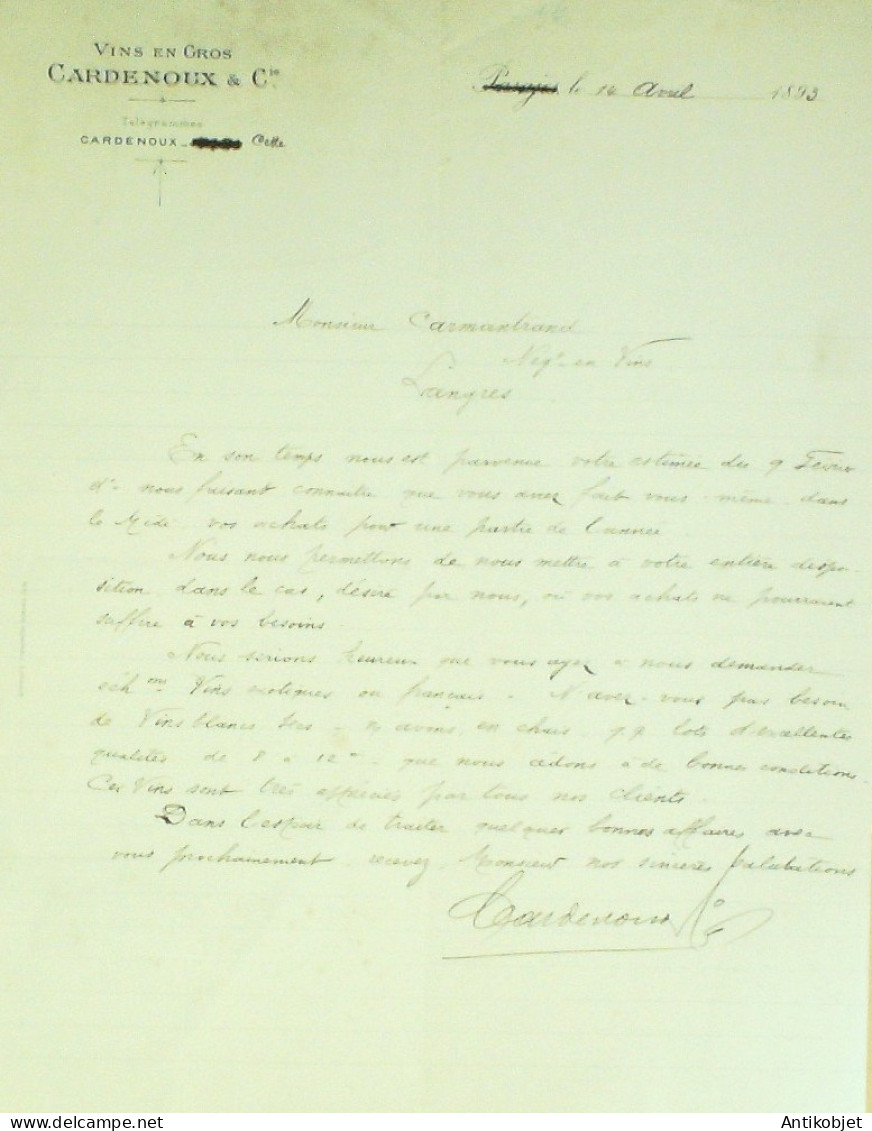 VINS EN GROS
CARDENOUX & Cie
Télégrammes
CARDENOUX - Cette
le 14 Avril 1893
Monsieur Carmantrand
Négt en Vins
Langres
En son temps nous est parvenue votre estimée du 9 Février
dr nous faisant connaître que vous avez fait vous-même dans
le Midi vos achats pour une partie de l'année.
Nous nous permettons de nous mettre à votre entière dispo-
sition dans le cas, désiré par nous, où vos achats ne pourraient
suffire à vos besoins.
Nous serions heureux que vous ayez à nous demander
échons Vins exotiques ou français. N'avez-vous pas besoin
de Vins blancs secs - ns avons en chais q.q. lots d'excellentes
qualités de 8 à 12° - que nous cédons à de bonnes conditions.
Ces Vins sont très appréciés par tous nos clients.
Dans l'espoir de traiter quelques bonnes affaires avec
vous prochainement recevez Monsieur nos sincères salutations
Cardenoux
www.antikobjet.com
Antikobjet